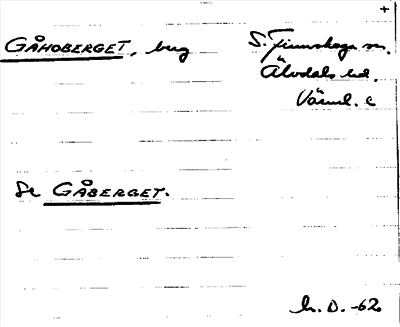 +
GÅHOBERGET, berg S. Finnskoga sn.
Älvdals hd.
Värml. l.
Se GÅBERGET.
h. D. -62